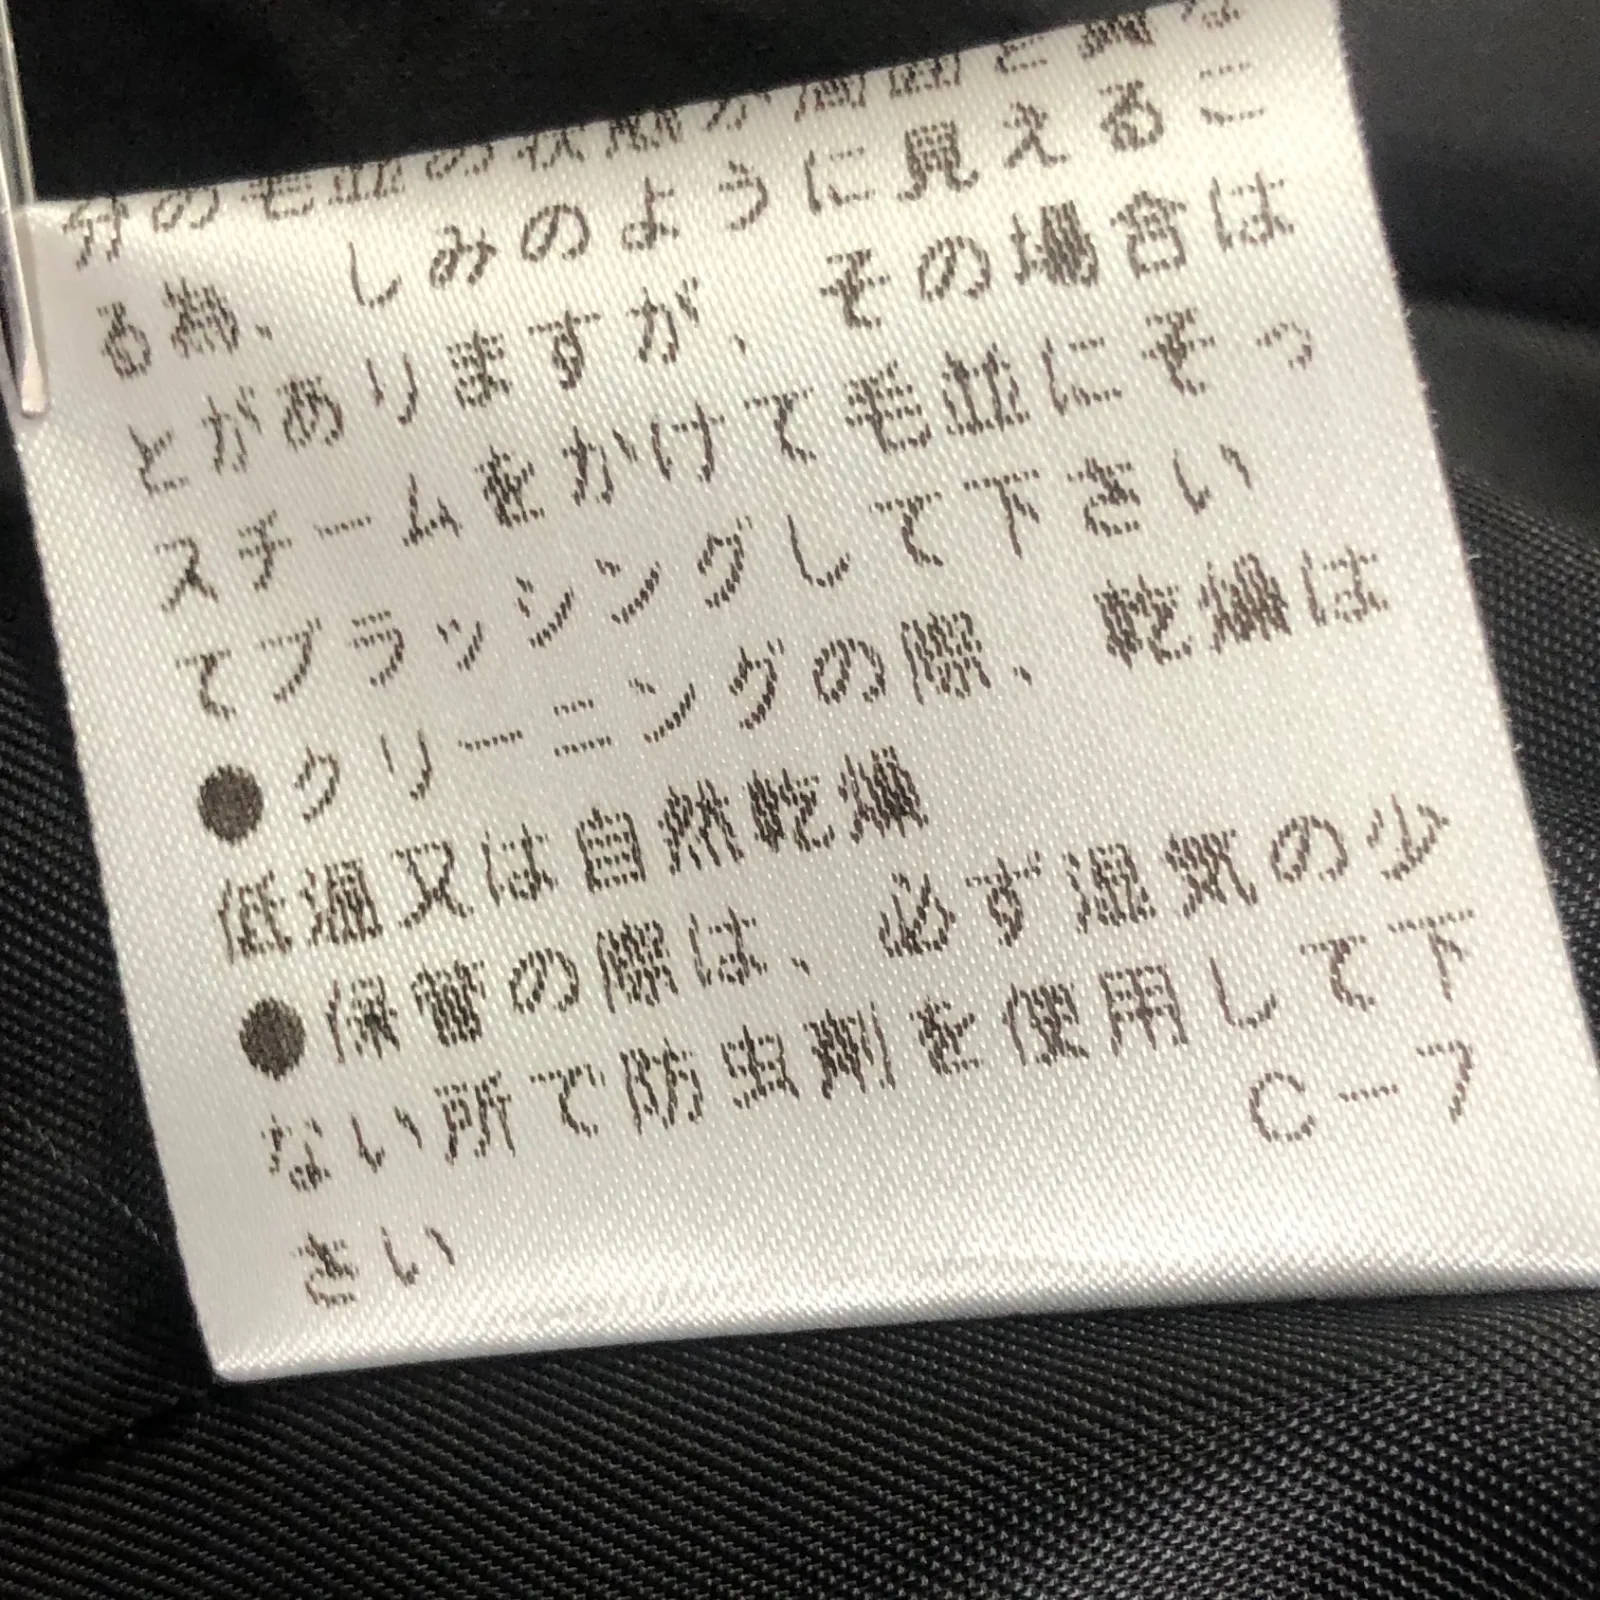 分の毛並の状態が周囲と異な
る為、しみのように見えるこ
とがありますが、その場合は
スチームをかけて毛並にそっ
てブラッシングして下さい
●クリーニングの際、乾燥は
低温又は自然乾燥
●保管の際は、必ず湿気の少
ない所で防虫剤を使用して下
さい
C-7